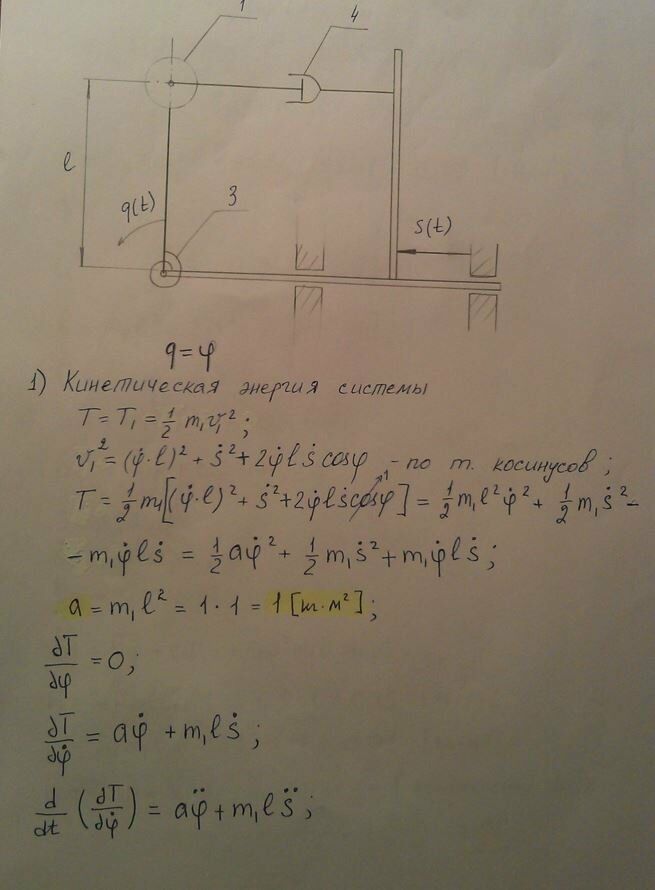 1
4
l
q(t)
3
s(t)
q = φ
1) Кинетическая энергия системы
T = T₁ = 1/2 m₁v₁²;
v₁² = (φ̇·l)² + ṡ² + 2φ̇lṡcosφ - по т. косинусов;
T = 1/2 m₁[(φ̇·l)² + ṡ² + 2φ̇lṡcosφ] = 1/2 m₁l²φ̇² + 1/2 m₁ṡ² -
- m₁φ̇lṡ = 1/2 aφ̇² + 1/2 m₁ṡ² + m₁φ̇lṡ;
a = m₁l² = 1·1 = 1 [кг·м²];
∂T/∂φ = 0;
∂T/∂φ̇ = aφ̇ + m₁lṡ;
d/dt (∂T/∂φ̇) = aφ̈ + m₁ls̈;